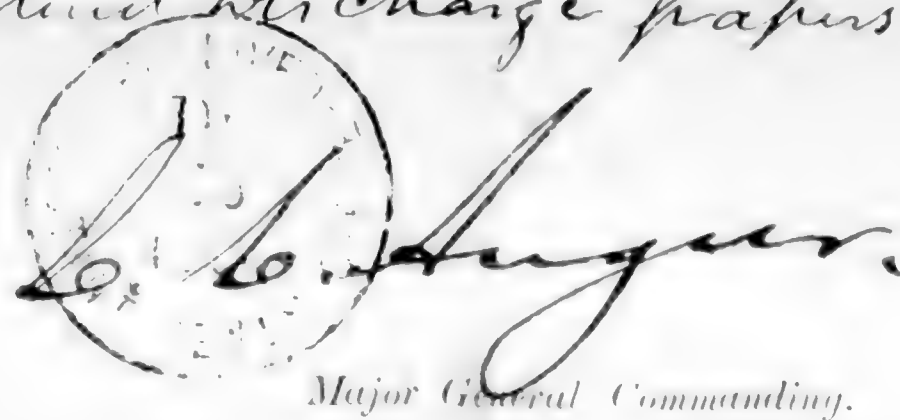 and discharge papers
C. C. Augur.
Major General Commanding.